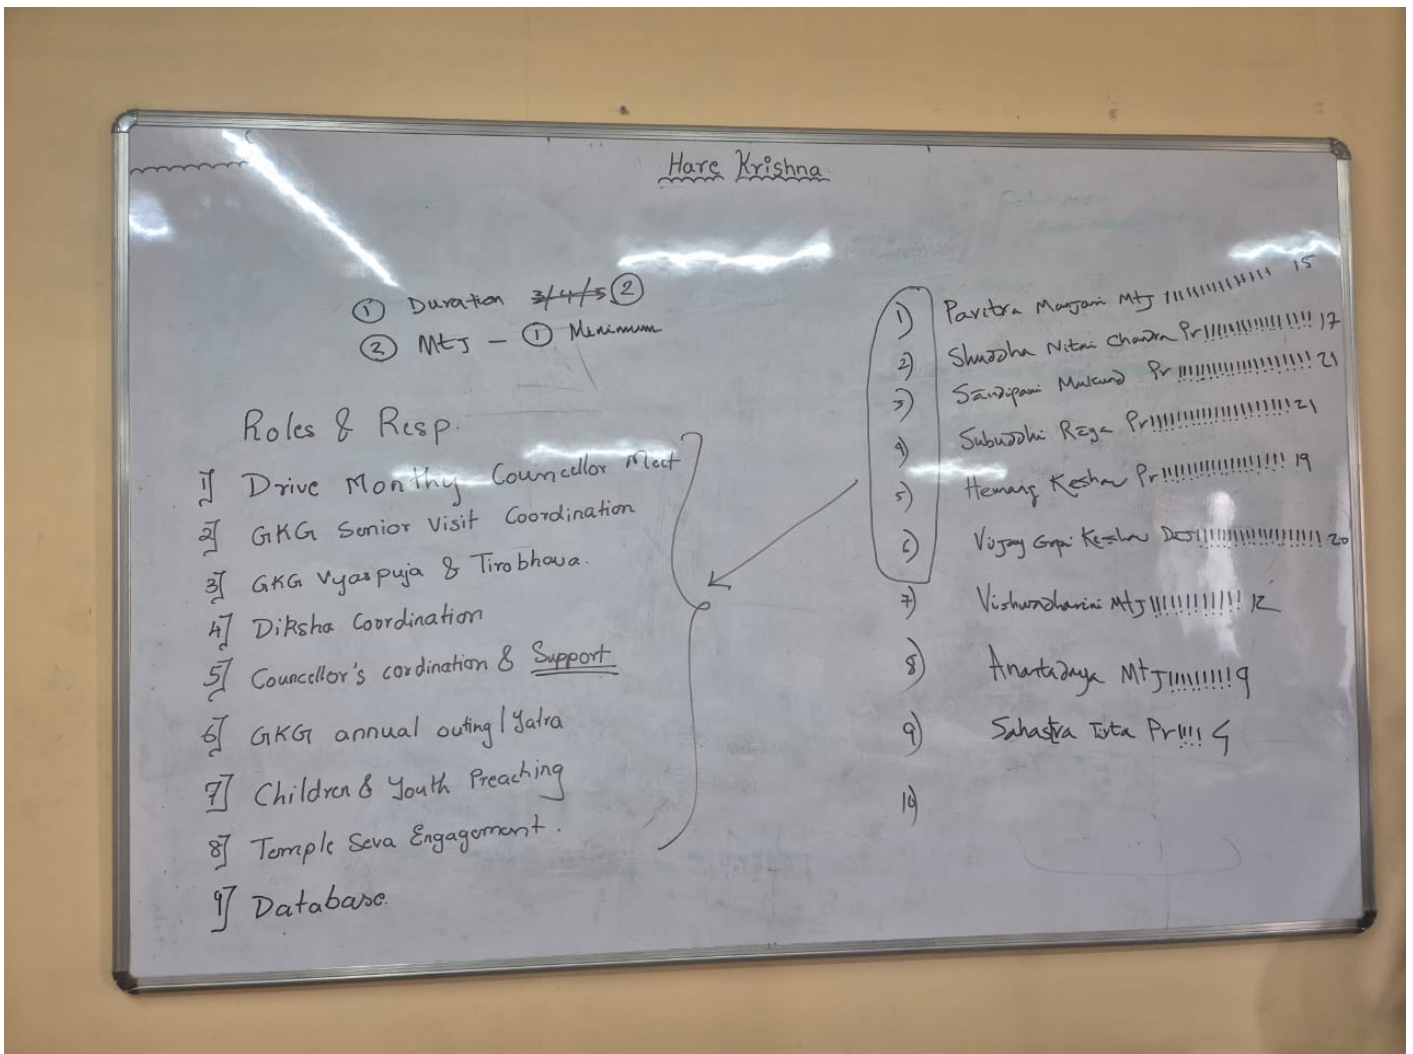 Hare Krishna
① Duration 3/4/5 ②
② MtJ - ① Minimum
Roles & Resp.
1] Drive Monthy Councellor Meet
2] GKG Senior Visit Coordination
3] GKG Vyaspuja & Tirobhava.
4] Diksha Coordination
5] Councellor's cordination & Support
6] GKG annual outing / Yatra
7] Children & Youth Preaching
8] Temple Seva Engagement.
9] Database.
1) Pavitra Manjari MtJ 15
2) Shuddha Nitai Chandra Pr 17
3) Sandipani Mukund Pr 21
4) Subuddhi Raya Pr 21
5) Hemang Keshav Pr 19
6) Vijay Gopi Keshav 20
7) Vishwadharini MtJ 12
8) MtJ 9
9) Sahastra Pr
10)